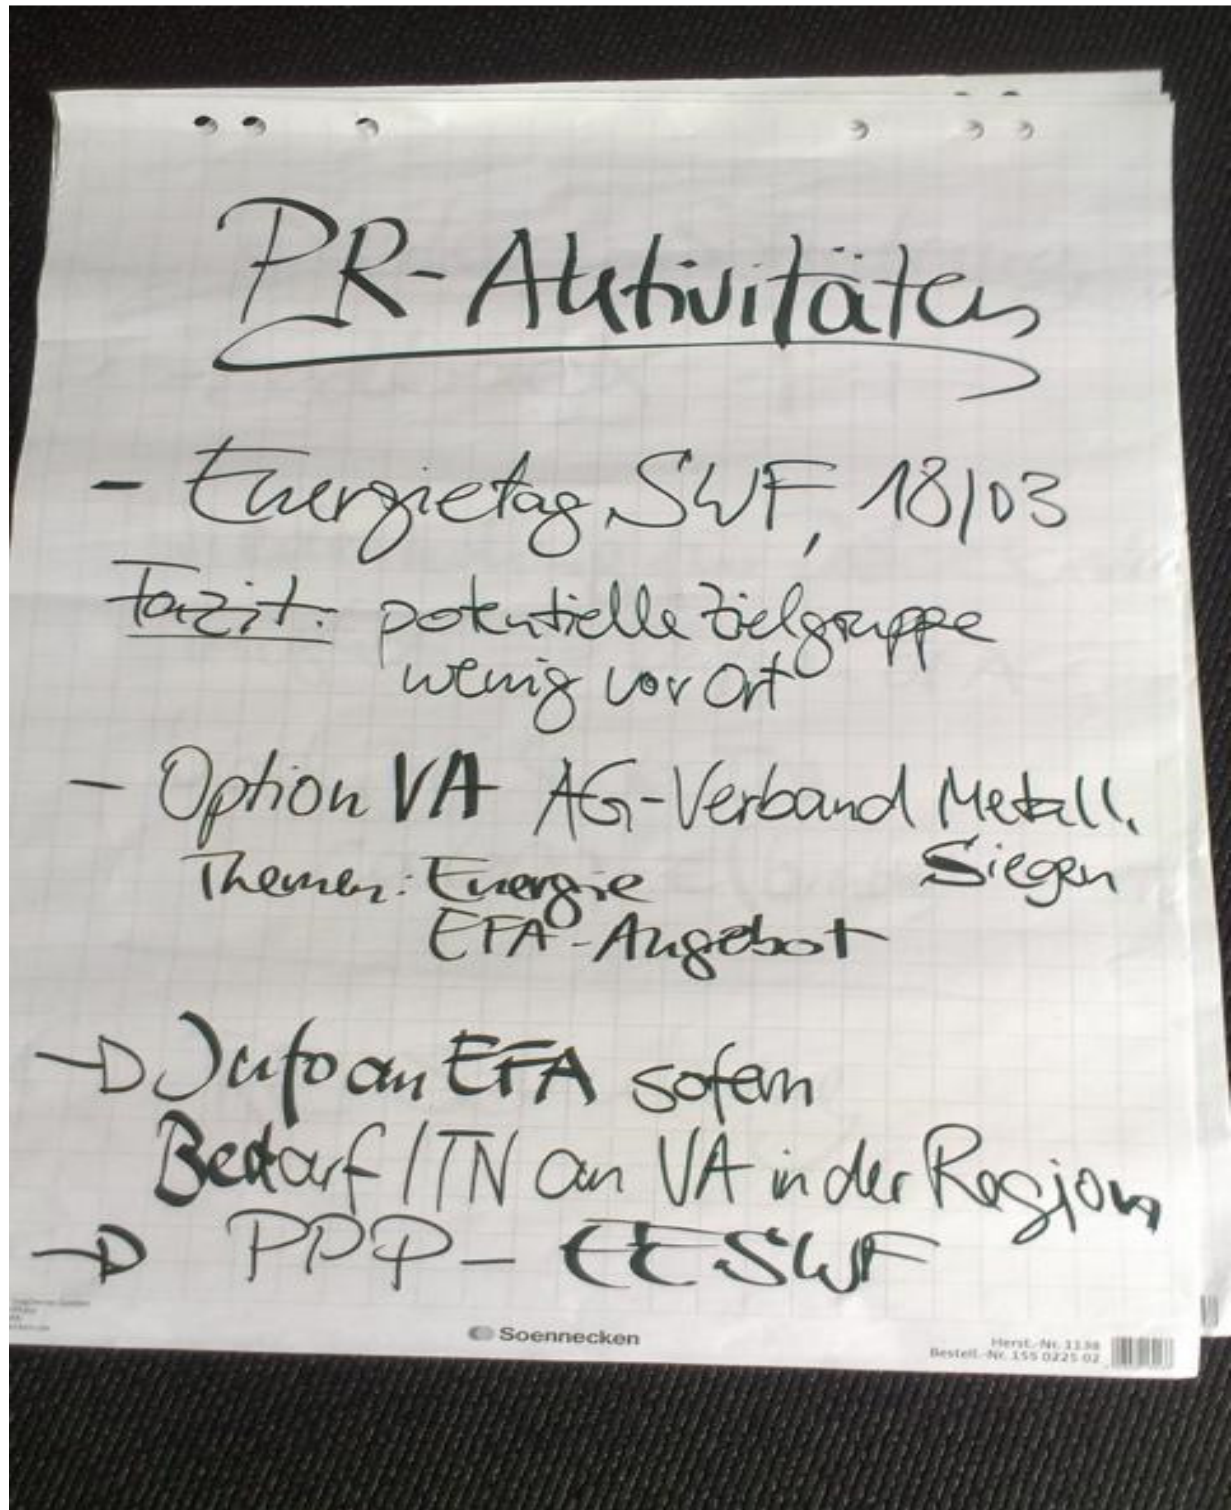 PR-Aktivitäten
- Energietag SWF, 18/03
Fazit: potentielle Zielgruppe
wenig vor Ort
- Option VA AG-Verband Metall.
Siegen
Themen: Energie
EFA-Angebot
→ Info an EFA sofern
Bedarf / TN an VA in der Region
→ PPP - EESWF
Soennecken
Herst.-Nr. 1138
Bestell.-Nr. 155 0225 02